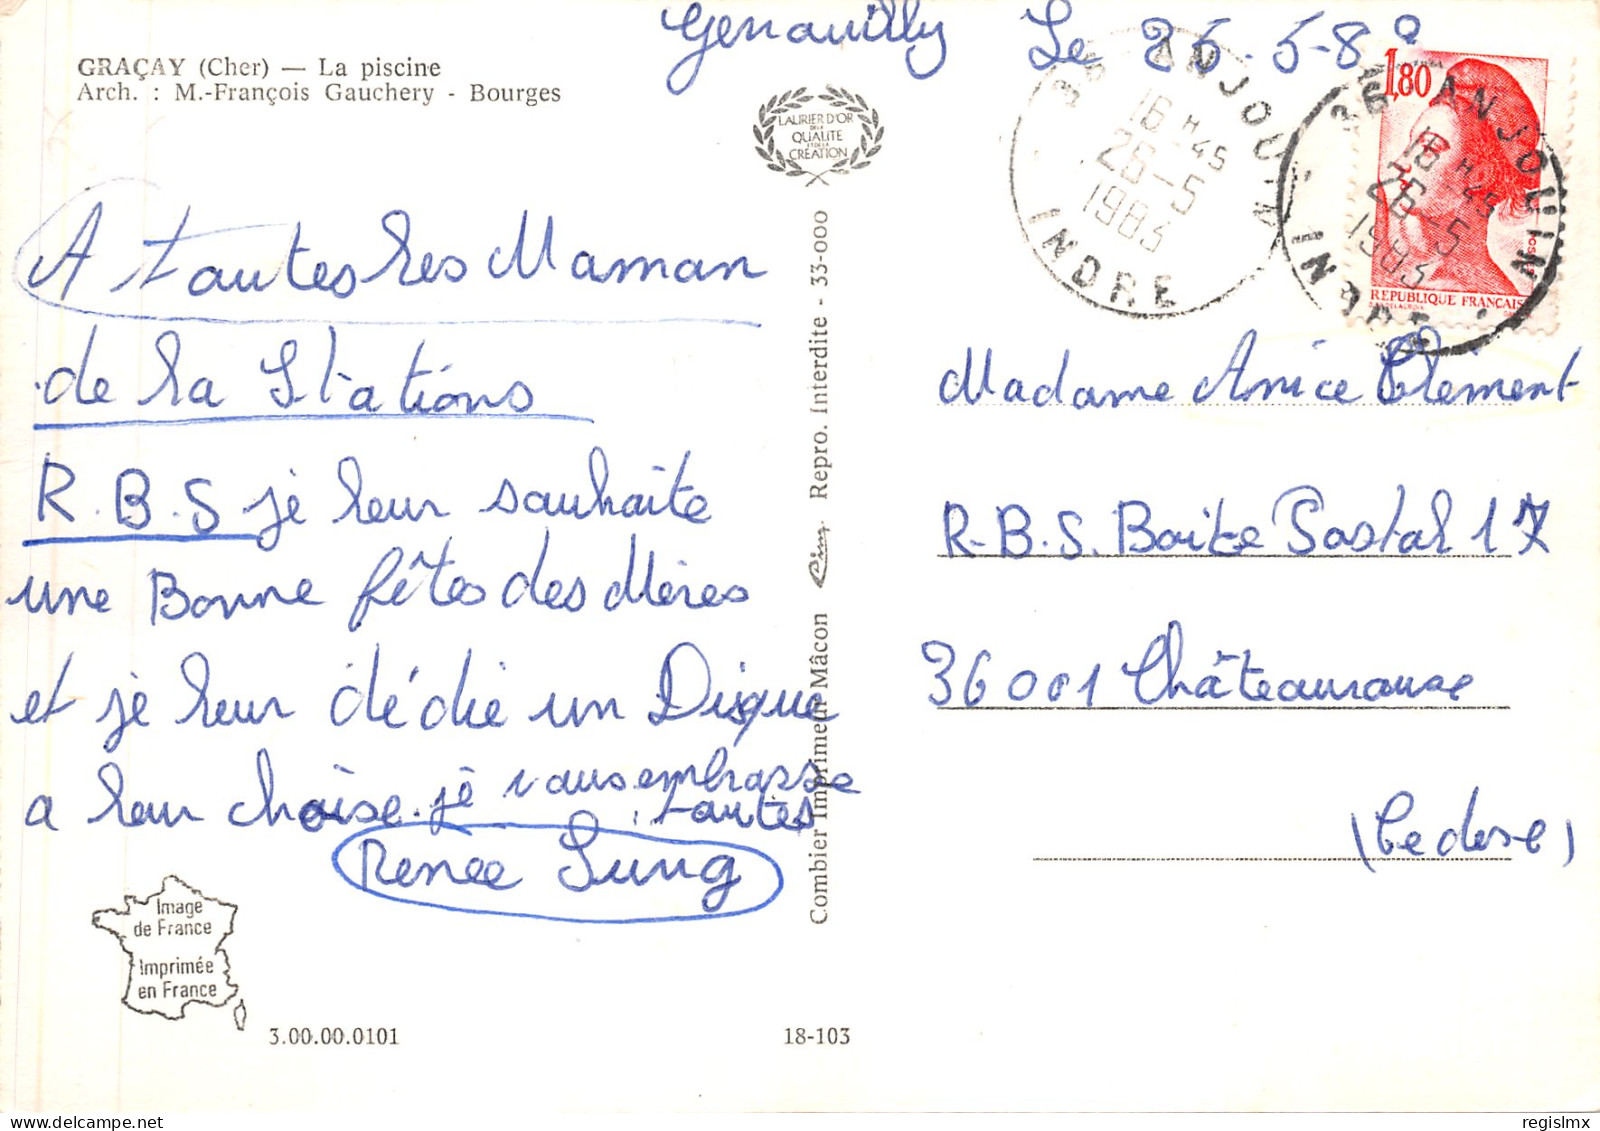 Genouilly Le 25-5-8
GRAÇAY (Cher) — La piscine
Arch. : M.-François Gauchery - Bourges
LAURIER D'OR
DE LA
QUALITE
ET DE LA
CREATION
36 ANJOUIN
16 H 45
26-5
1983
INDRE
1,80
36 ANJOUIN
16 H 45
26-5
1983
INDRE
REPUBLIQUE FRANCAISE
A toutes les Maman
de la Stations
R.B.S je leur souhaite
une Bonne fêtes des Mères
et je leur dédie un Disque
a leur choise. je vous embrasse
toutes
Renée Lung
Combier Imprimeur Mâcon Repro. Interdite - 33-000
Madame Anice Clément
R.B.S. Boite Postal 17
36001 Châteaurouse
(Cedexe)
Image
de France
Imprimée
en France
3.00.00.0101
18-103
regislmx